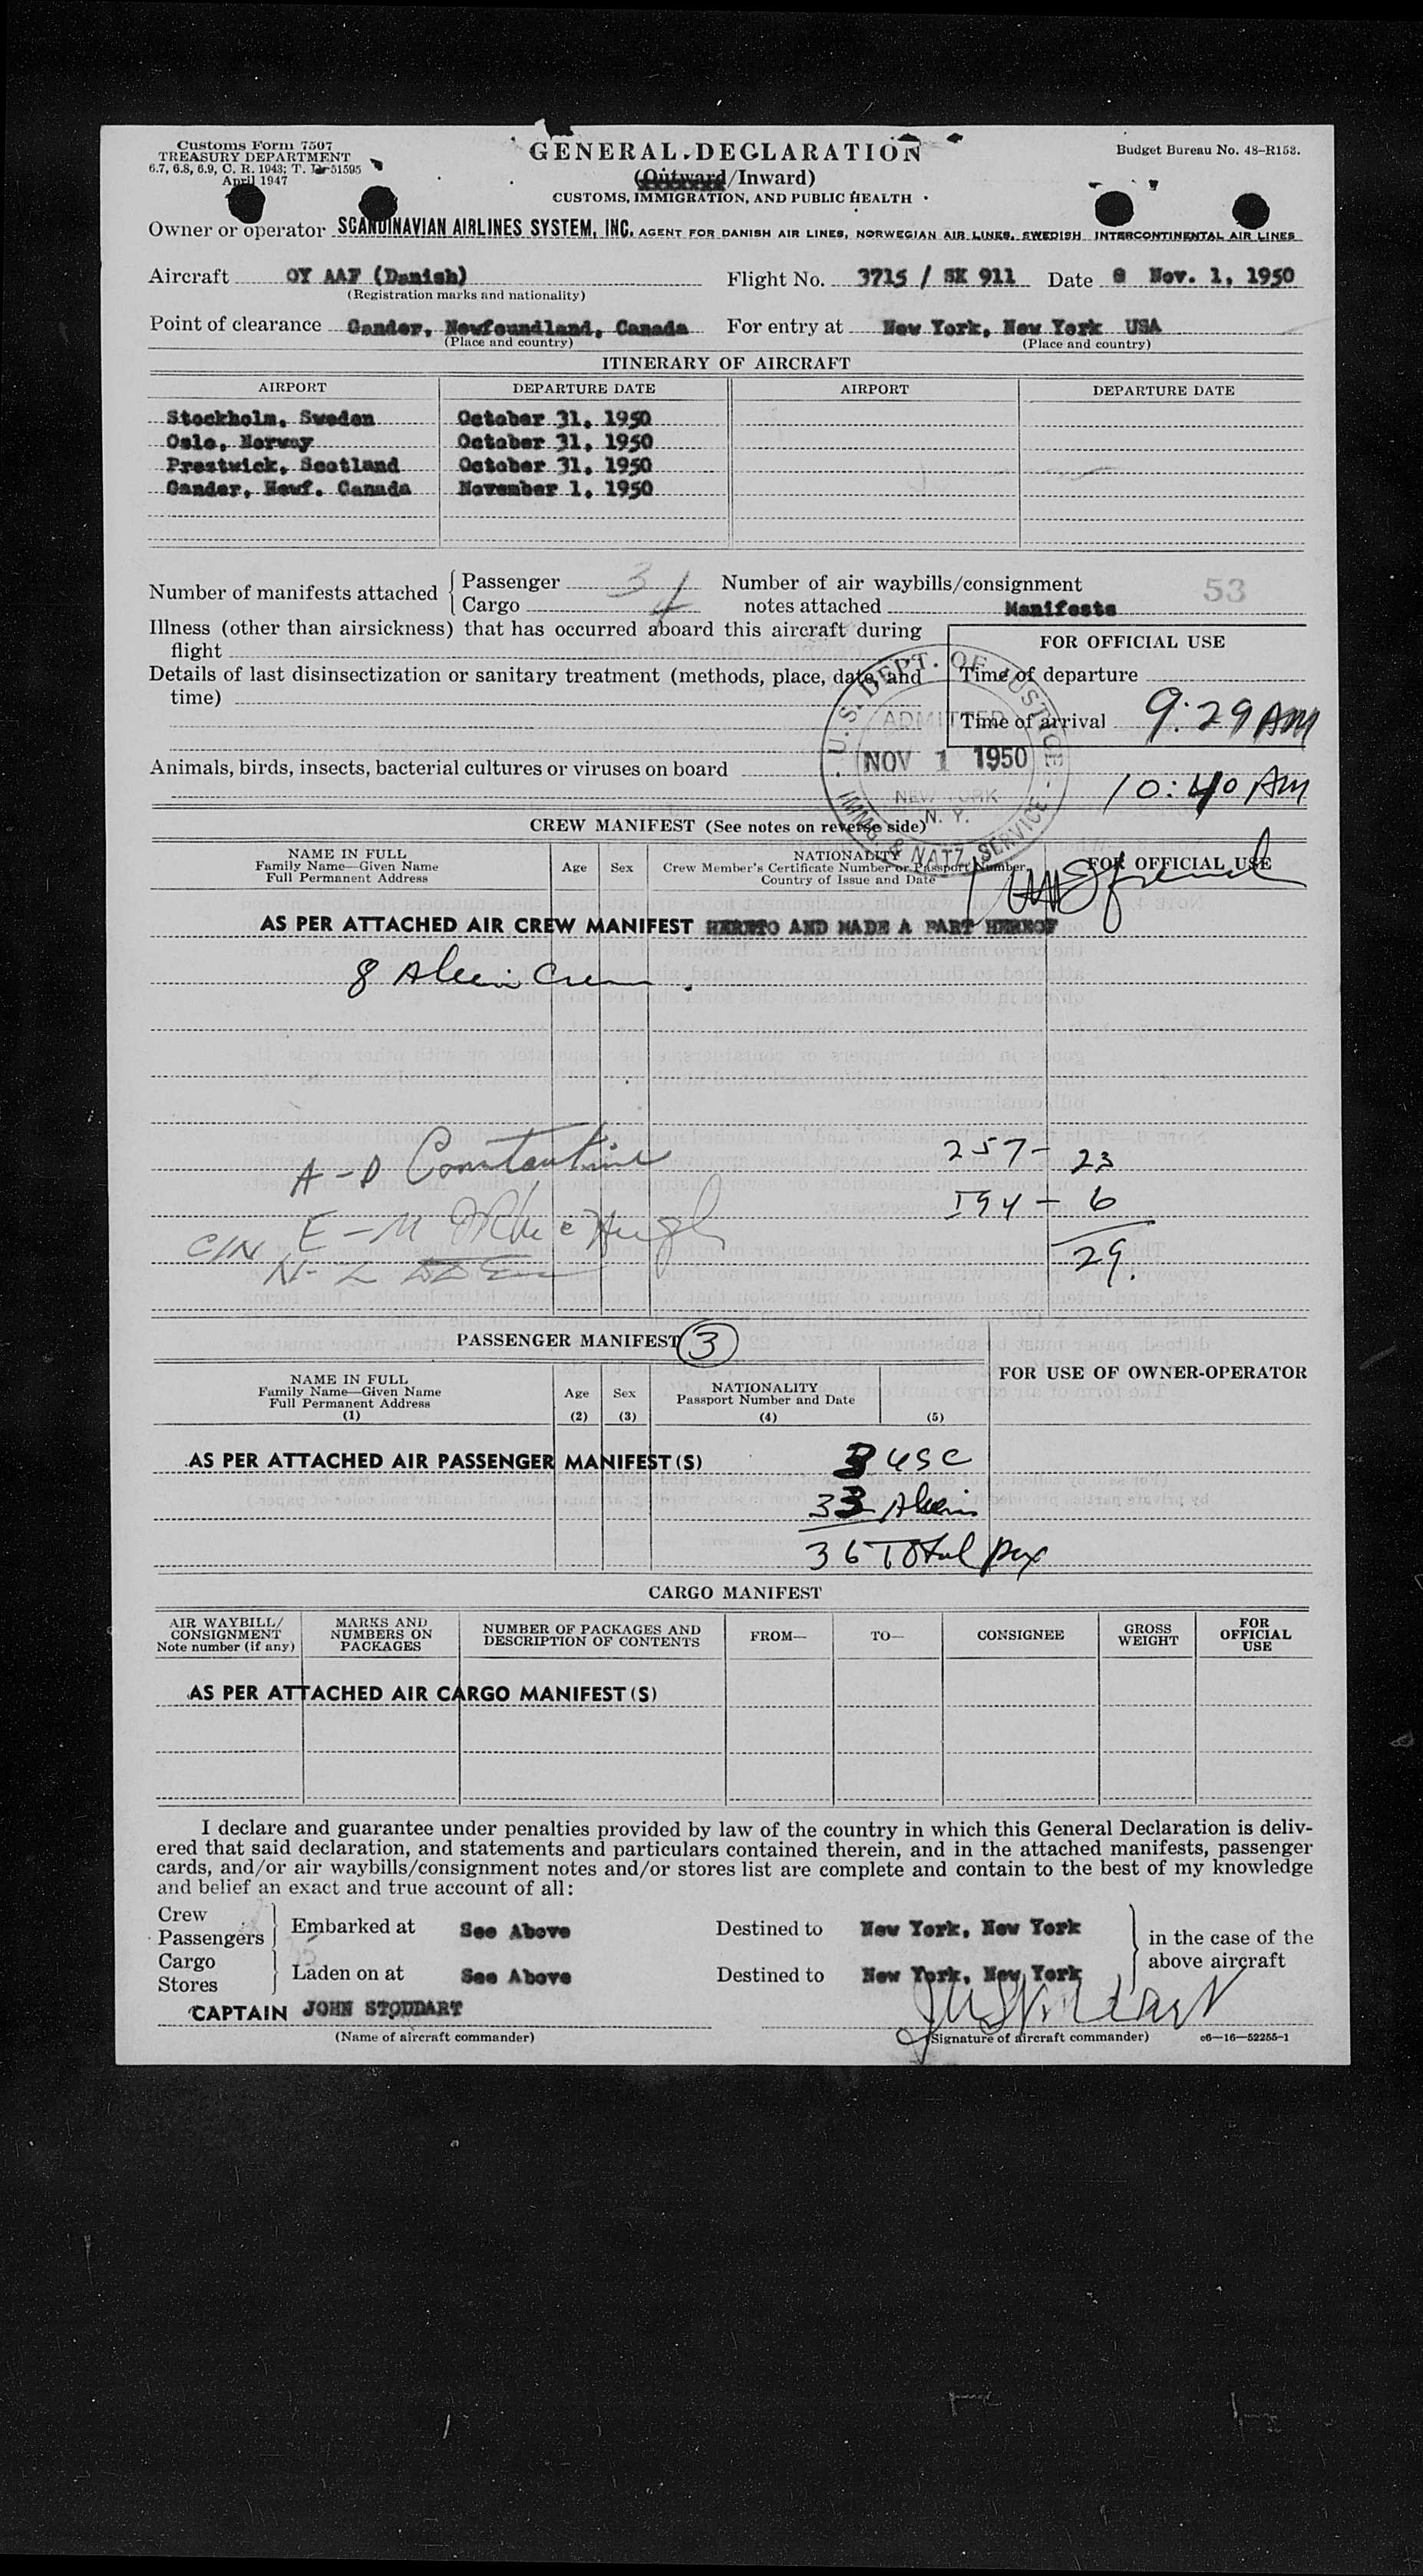 Customs Form 7507
TREASURY DEPARTMENT
6.7, 6.8, 6.9, C. R. 1943; T. D. 51595
April 1947
GENERAL DECLARATION
(Outward/Inward)
CUSTOMS, IMMIGRATION, AND PUBLIC HEALTH
Budget Bureau No. 48-R153.
Owner or operator SCANDINAVIAN AIRLINES SYSTEM, INC. AGENT FOR DANISH AIR LINES, NORWEGIAN AIR LINES, SWEDISH INTERCONTINENTAL AIR LINES
Aircraft OY AAF (Danish) Flight No. 3715 / SK 911 Date Nov. 1, 1950
(Registration marks and nationality)
Point of clearance Gander, Newfoundland, Canada For entry at New York, New York USA
(Place and country) (Place and country)
ITINERARY OF AIRCRAFT
AIRPORT DEPARTURE DATE AIRPORT DEPARTURE DATE
Stockholm, Sweden October 31, 1950
Oslo, Norway October 31, 1950
Prestwick, Scotland October 31, 1950
Gander, Newf. Canada November 1, 1950
Number of manifests attached Passenger 3 Cargo 4
Number of air waybills/consignment notes attached 53 Manifests
Illness (other than airsickness) that has occurred aboard this aircraft during
flight
Details of last disinsectization or sanitary treatment (methods, place, date, and
time)
FOR OFFICIAL USE
Time of departure
Time of arrival 9:29 AM
10:40 AM
U. S. DEPT. OF JUSTICE
ADMITTED
NOV 1 1950
NEW YORK
N. Y.
IMMG. & NATZ. SERVICE
Animals, birds, insects, bacterial cultures or viruses on board
CREW MANIFEST (See notes on reverse side)
NAME IN FULL
Family Name—Given Name
Full Permanent Address
Age Sex
NATIONALITY
Crew Member's Certificate Number or Passport Number
Country of Issue and Date
FOR OFFICIAL USE
AS PER ATTACHED AIR CREW MANIFEST HERETO AND MADE A PART HEREOF
8 Alien Crew
A-D Constantine 257 - 23
E-M McHugh 194 - 6
C/N
N-Z 29.
PASSENGER MANIFEST 3
FOR USE OF OWNER-OPERATOR
NAME IN FULL
Family Name—Given Name
Full Permanent Address
(1)
Age
(2)
Sex
(3)
NATIONALITY
Passport Number and Date
(4) (5)
AS PER ATTACHED AIR PASSENGER MANIFEST(S) 3 USC
33 Alien
36 Total Pax
CARGO MANIFEST
AIR WAYBILL/
CONSIGNMENT
Note number (if any)
MARKS AND
NUMBERS ON
PACKAGES
NUMBER OF PACKAGES AND
DESCRIPTION OF CONTENTS
FROM— TO— CONSIGNEE
GROSS
WEIGHT
FOR
OFFICIAL
USE
AS PER ATTACHED AIR CARGO MANIFEST(S)
I declare and guarantee under penalties provided by law of the country in which this General Declaration is deliv-
ered that said declaration, and statements and particulars contained therein, and in the attached manifests, passenger
cards, and/or air waybills/consignment notes and/or stores list are complete and contain to the best of my knowledge
and belief an exact and true account of all:
Crew
Passengers Embarked at See Above Destined to New York, New York
Cargo
Stores Laden on at See Above Destined to New York, New York
in the case of the
above aircraft
CAPTAIN JOHN STODDART
(Name of aircraft commander) (Signature of aircraft commander) c6—16—52255-1